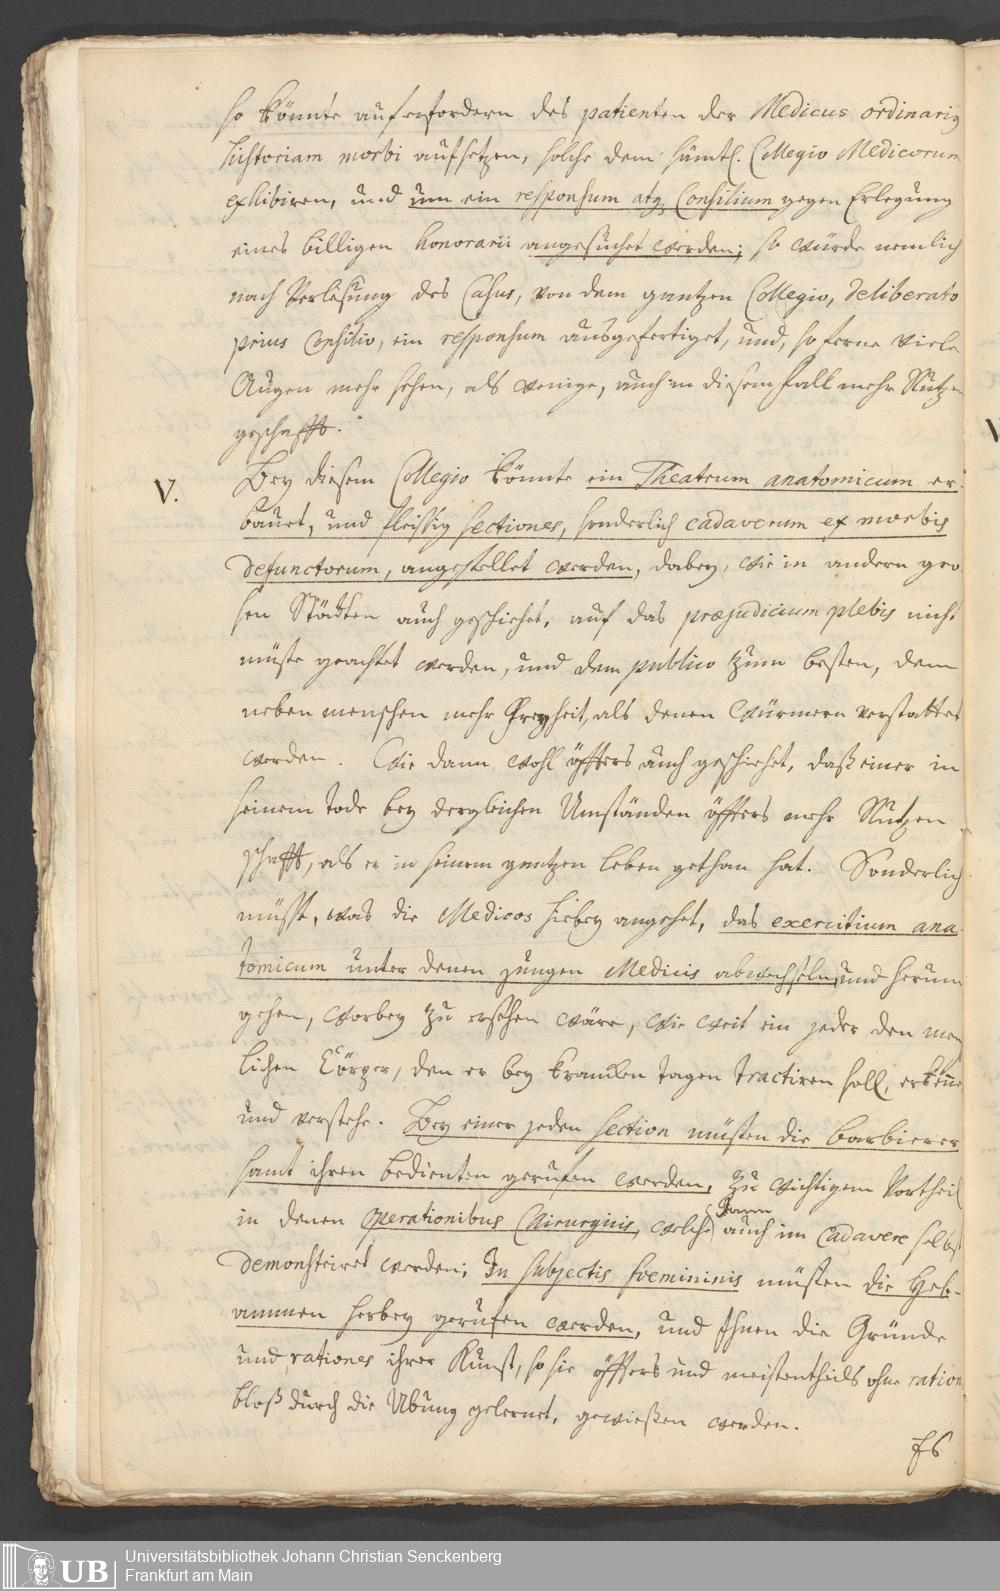 so könnte auf erfordern des patienten der Medicus ordinarius
historiam morbi aufsetzen, solche dem sämtl. Collegio Medicorum
exhibiren, und um ein responsum atq; Consilium gegen Erlegung
eines billigen honorarii angesuchet werden; so würde nemlich
nach Verlesung des Casus, von dem gantzen Collegio, deliberato
prius Consilio, ein responsum ausgefertiget, und, so ferne viele
Augen mehr sehen, als wenige, auch in diesem fall mehr Nutzen
geschafft.
V.
Bey diesem Collegio könnte ein Theatrum anatomicum er-
bauet, und fleissig Sectiones, sonderlich cadaverum ex morbis
defunctorum, angestellet werden, dabey, wie in andern gro
sen Städten auch geschiehet, auf das præjudicium plebis nicht
müste geachtet werden, und dem publico zum besten, dem
neben menschen mehr Freyheit, als denen Würmern verstattet
werden. Wie dann wohl öffters auch geschiehet, daß einer in
seinem Tode bey dergleichen Umständen öffters mehr Nutzen
schafft, als er in seinem gantzen Leben gethan hat. Sonderlich
müste, was die Medicos hiebey angehet, das exercitium ana-
tomicum unter denen jungen Medicis abwechseln, und herum
gehen, worbey zu ersehen wäre, wie weit ein jeder den men
lichen Cörper, den er bey krancken Tagen tractiren soll, erkenne
und verstehe. Bey einer jeden Section müsten die Barbierer
samt ihren bedienten gerufen werden, zu wichtigem Vortheil
in denen operationibus Chirurgicis, welche denen auch im Cadavere selbst
demonstriret werden; In Subjectis foemininis müsten die Heb-
ammen herbey gerufen werden, und Ihnen die Gründe
und rationes ihrer Kunst, so sie öffters und meistentheils ohne ration
bloß durch die Ubung gelernet, gewießen werden.
Es
Universitätsbibliothek Johann Christian Senckenberg
Frankfurt am Main
UB